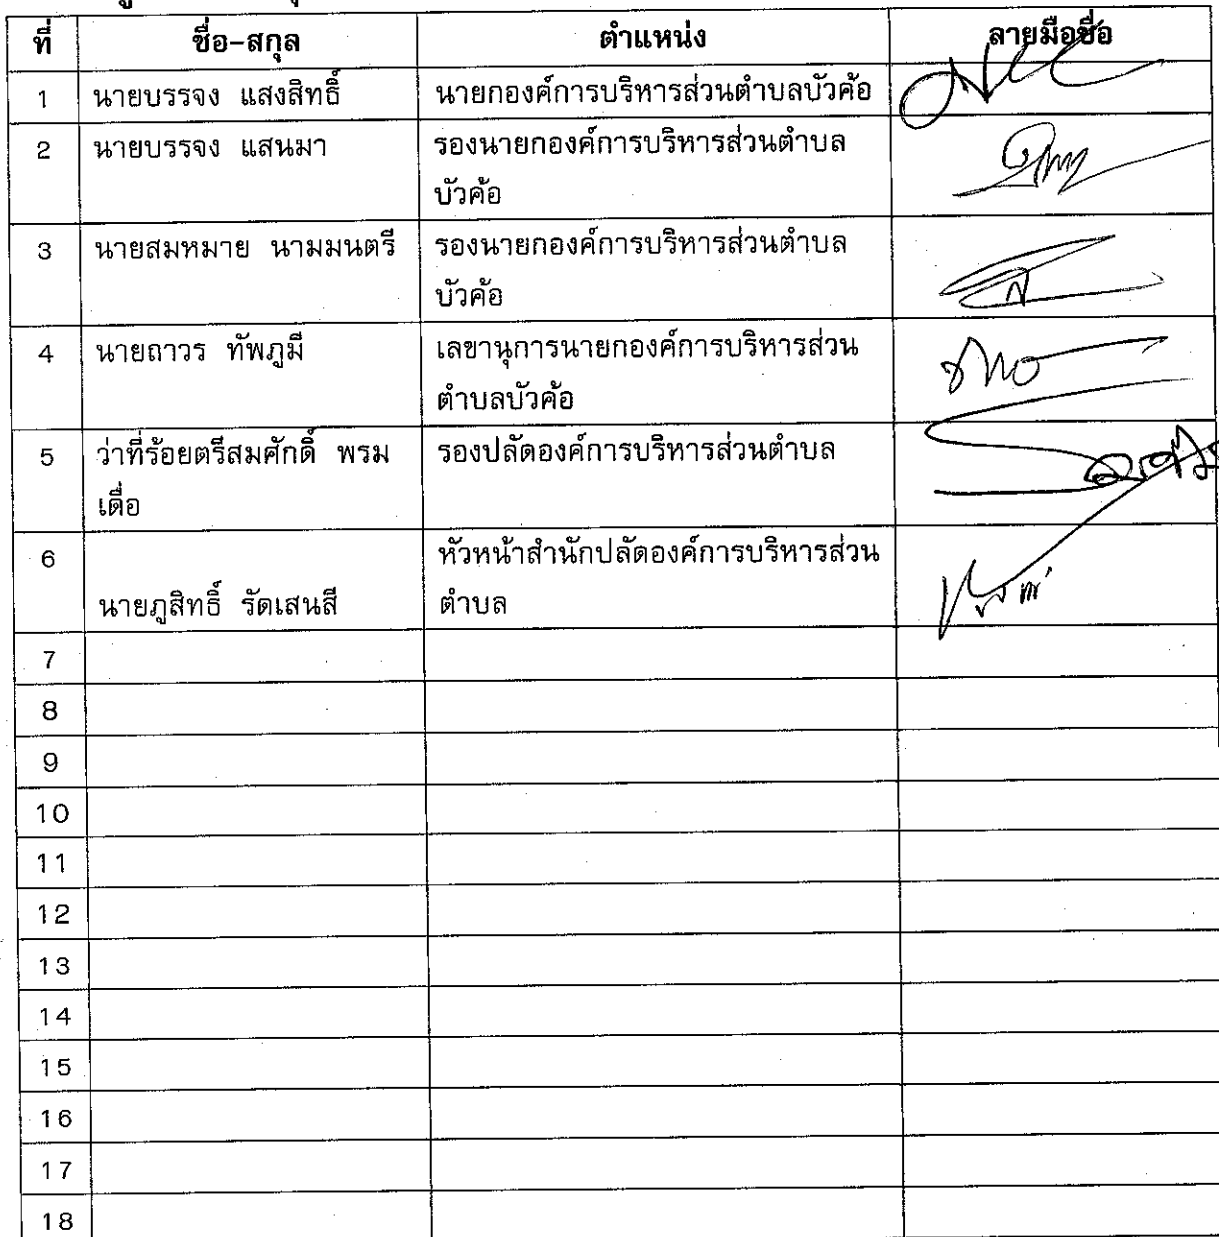 ที่ ชื่อ-สกุล ตำแหน่ง ลายมือชื่อ
1 นายบรรจง แสงสิทธิ์ นายกองค์การบริหารส่วนตำบลบัวค้อ
2 นายบรรจง แสนมา รองนายกองค์การบริหารส่วนตำบล
บัวค้อ
3 นายสมหมาย นามมนตรี รองนายกองค์การบริหารส่วนตำบล
บัวค้อ
4 นายถาวร ทัพภูมี เลขานุการนายกองค์การบริหารส่วน
ตำบลบัวค้อ
5 ว่าที่ร้อยตรีสมศักดิ์ พรม รองปลัดองค์การบริหารส่วนตำบล
เดื่อ
6 หัวหน้าสำนักปลัดองค์การบริหารส่วน
นายภูสิทธิ์ รัดเสนสี ตำบล
7
8
9
10
11
12
13
14
15
16
17
18